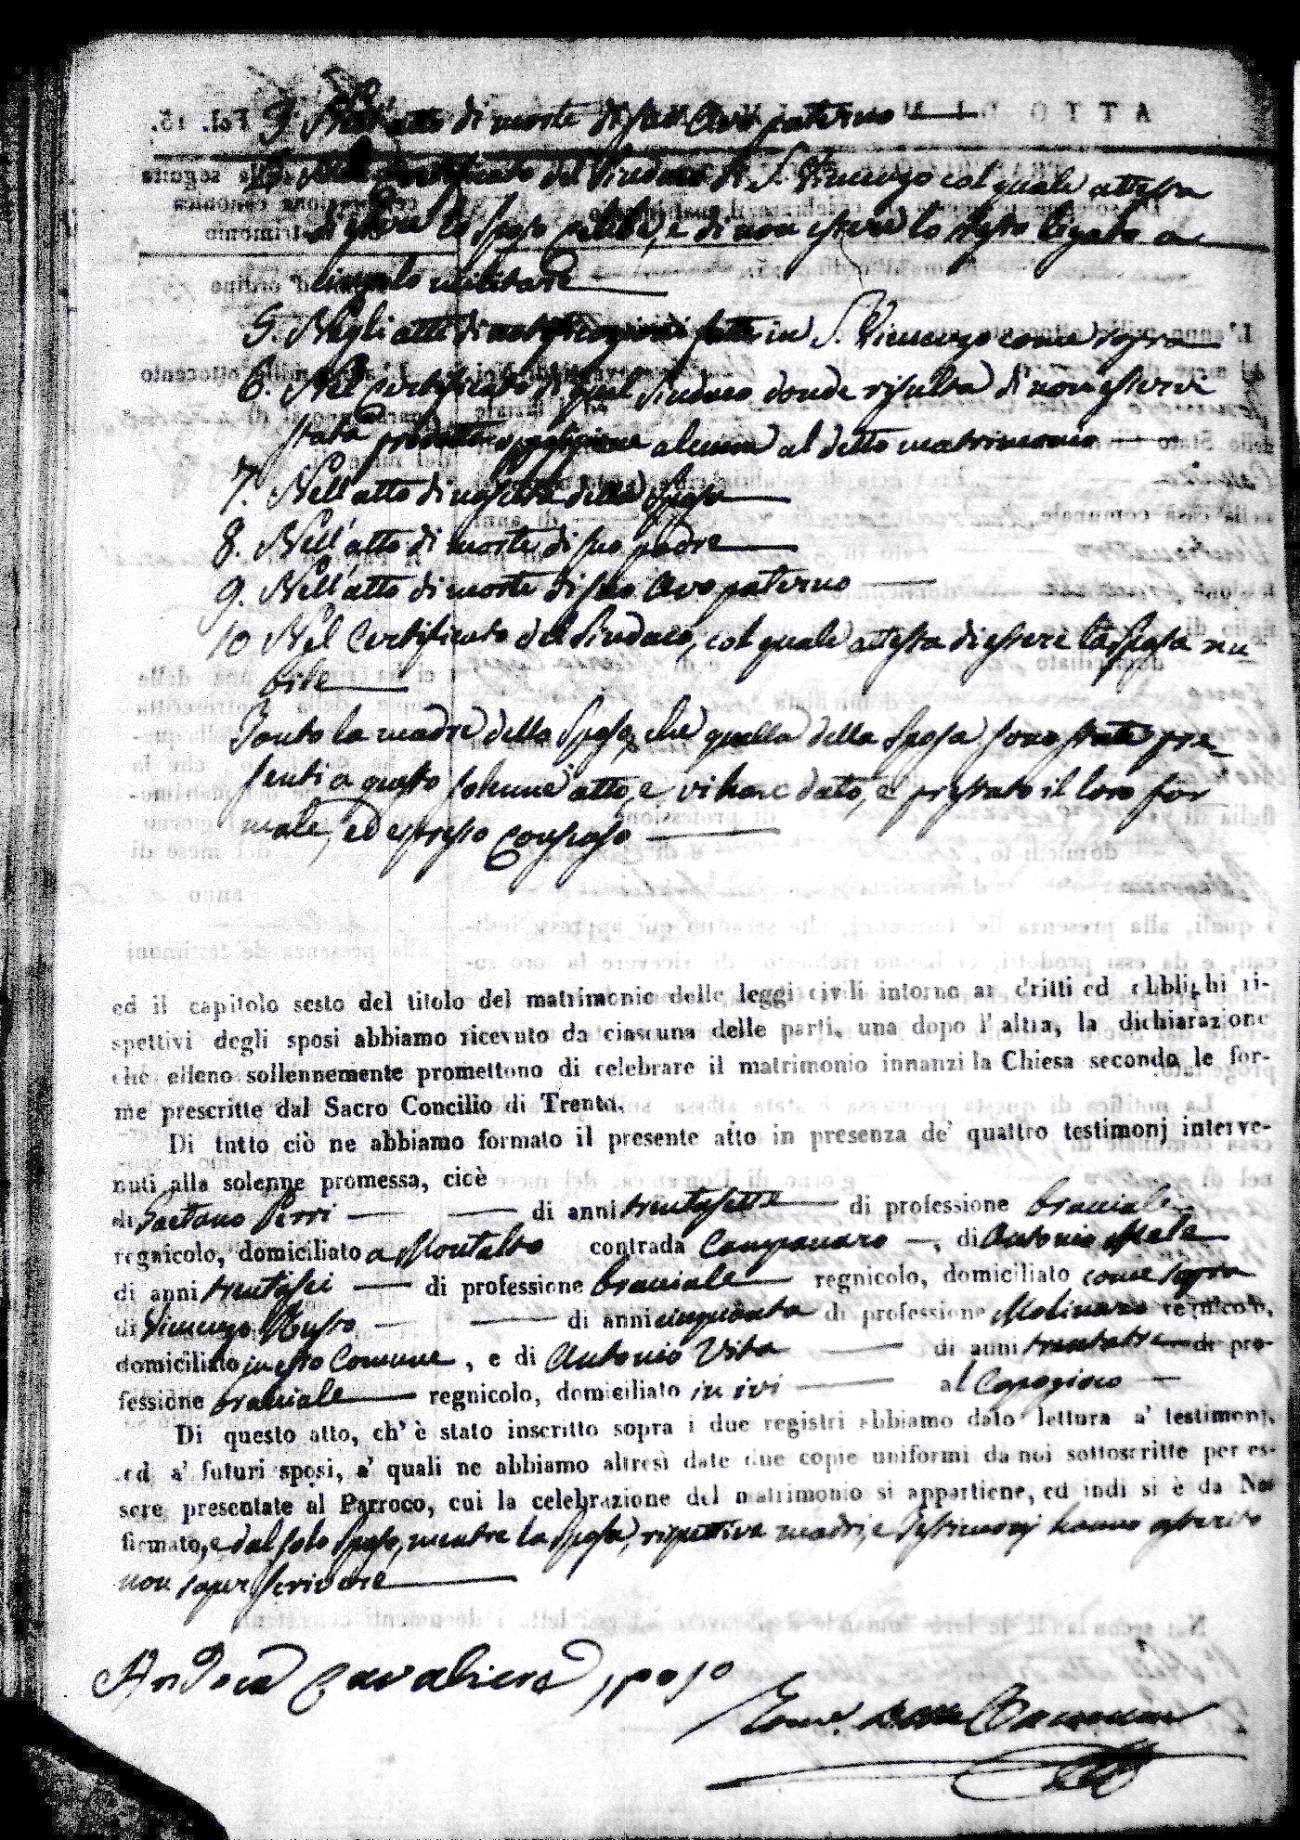 3. Nell'atto di morte di suo Avo paterno
4. Nel Certificato del Sindaco di S. Vincenzo col quale attesta
di essere lo Sposo celibe, e di non essere lo stesso legato a
cingolo militare
5. Negli atti di notificazioni fatte in S. Vincenzo come sopra
6. Nel Certificato di quel Sindaco donde risulta di non esservi
stata prodotta opposizione alcuna al detto matrimonio
7. Nell'atto di nascita della Sposa
8. Nell'atto di morte di suo padre
9. Nell'atto di morte di suo Avo paterno
10 Nel Certificato del Sindaco, col quale attesta di essere la Sposa nu=
bile
Tanto la madre dello Sposo, che quella della Sposa sono state pre=
senti a questo solenne atto, e vi hanno dato, e prestato il loro for
male, ed espresso consenso
ed il capitolo sesto del titolo del matrimonio delle leggi civili intorno ai dritti ed obblighi ri-
spettivi degli sposi abbiamo ricevuto da ciascuna delle parti, una dopo l'altra, la dichiarazione
che elleno sollennemente promettono di celebrare il matrimonio innanzi la Chiesa secondo le for-
me prescritte dal Sacro Concilio di Trento.
Di tutto ciò ne abbiamo formato il presente atto in presenza de' quattro testimonj interve-
nuti alla solenne promessa, cioè
di Gaetano Perri di anni trentasette di professione bracciale
regnicolo, domiciliato a Montalto contrada Campanaro, di Antonio Mele
di anni trentasei di professione bracciale regnicolo, domiciliato come sopra
di Vincenzo Russo di anni cinquanta di professione Molinaro regnicolo,
domiciliato in esso Comune, e di Antonio Vita di anni trentatre di pro-
fessione bracciale regnicolo, domiciliato in ivi al
Di questo atto, ch'è stato inscritto sopra i due registri abbiamo dato lettura a' testimonj,
ed a' futuri sposi, a' quali ne abbiamo altresì date due copie uniformi da noi sottoscritte per es-
sere presentate al Parroco, cui la celebrazione del matrimonio si appartiene, ed indi si è da Noi
firmato, e dal solo Sposo, mentre la Sposa, rispettive madri, e Testimonj hanno asserito
non saper scrivere
Cavaliere sposo